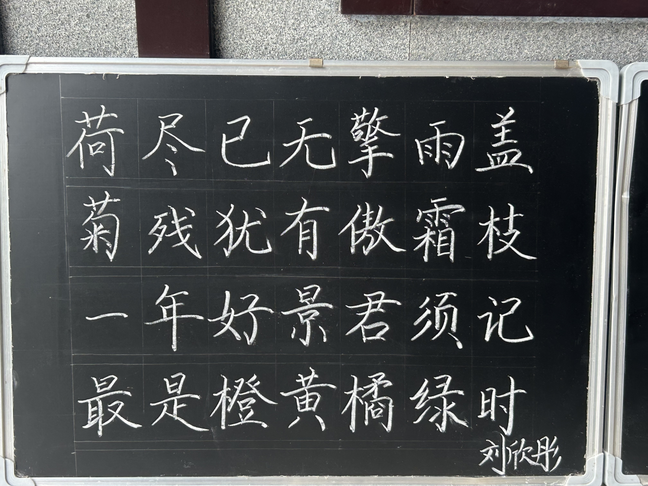 荷尽已无擎雨盖
菊残犹有傲霜枝
一年好景君须记
最是橙黄橘绿时
刘欣彤